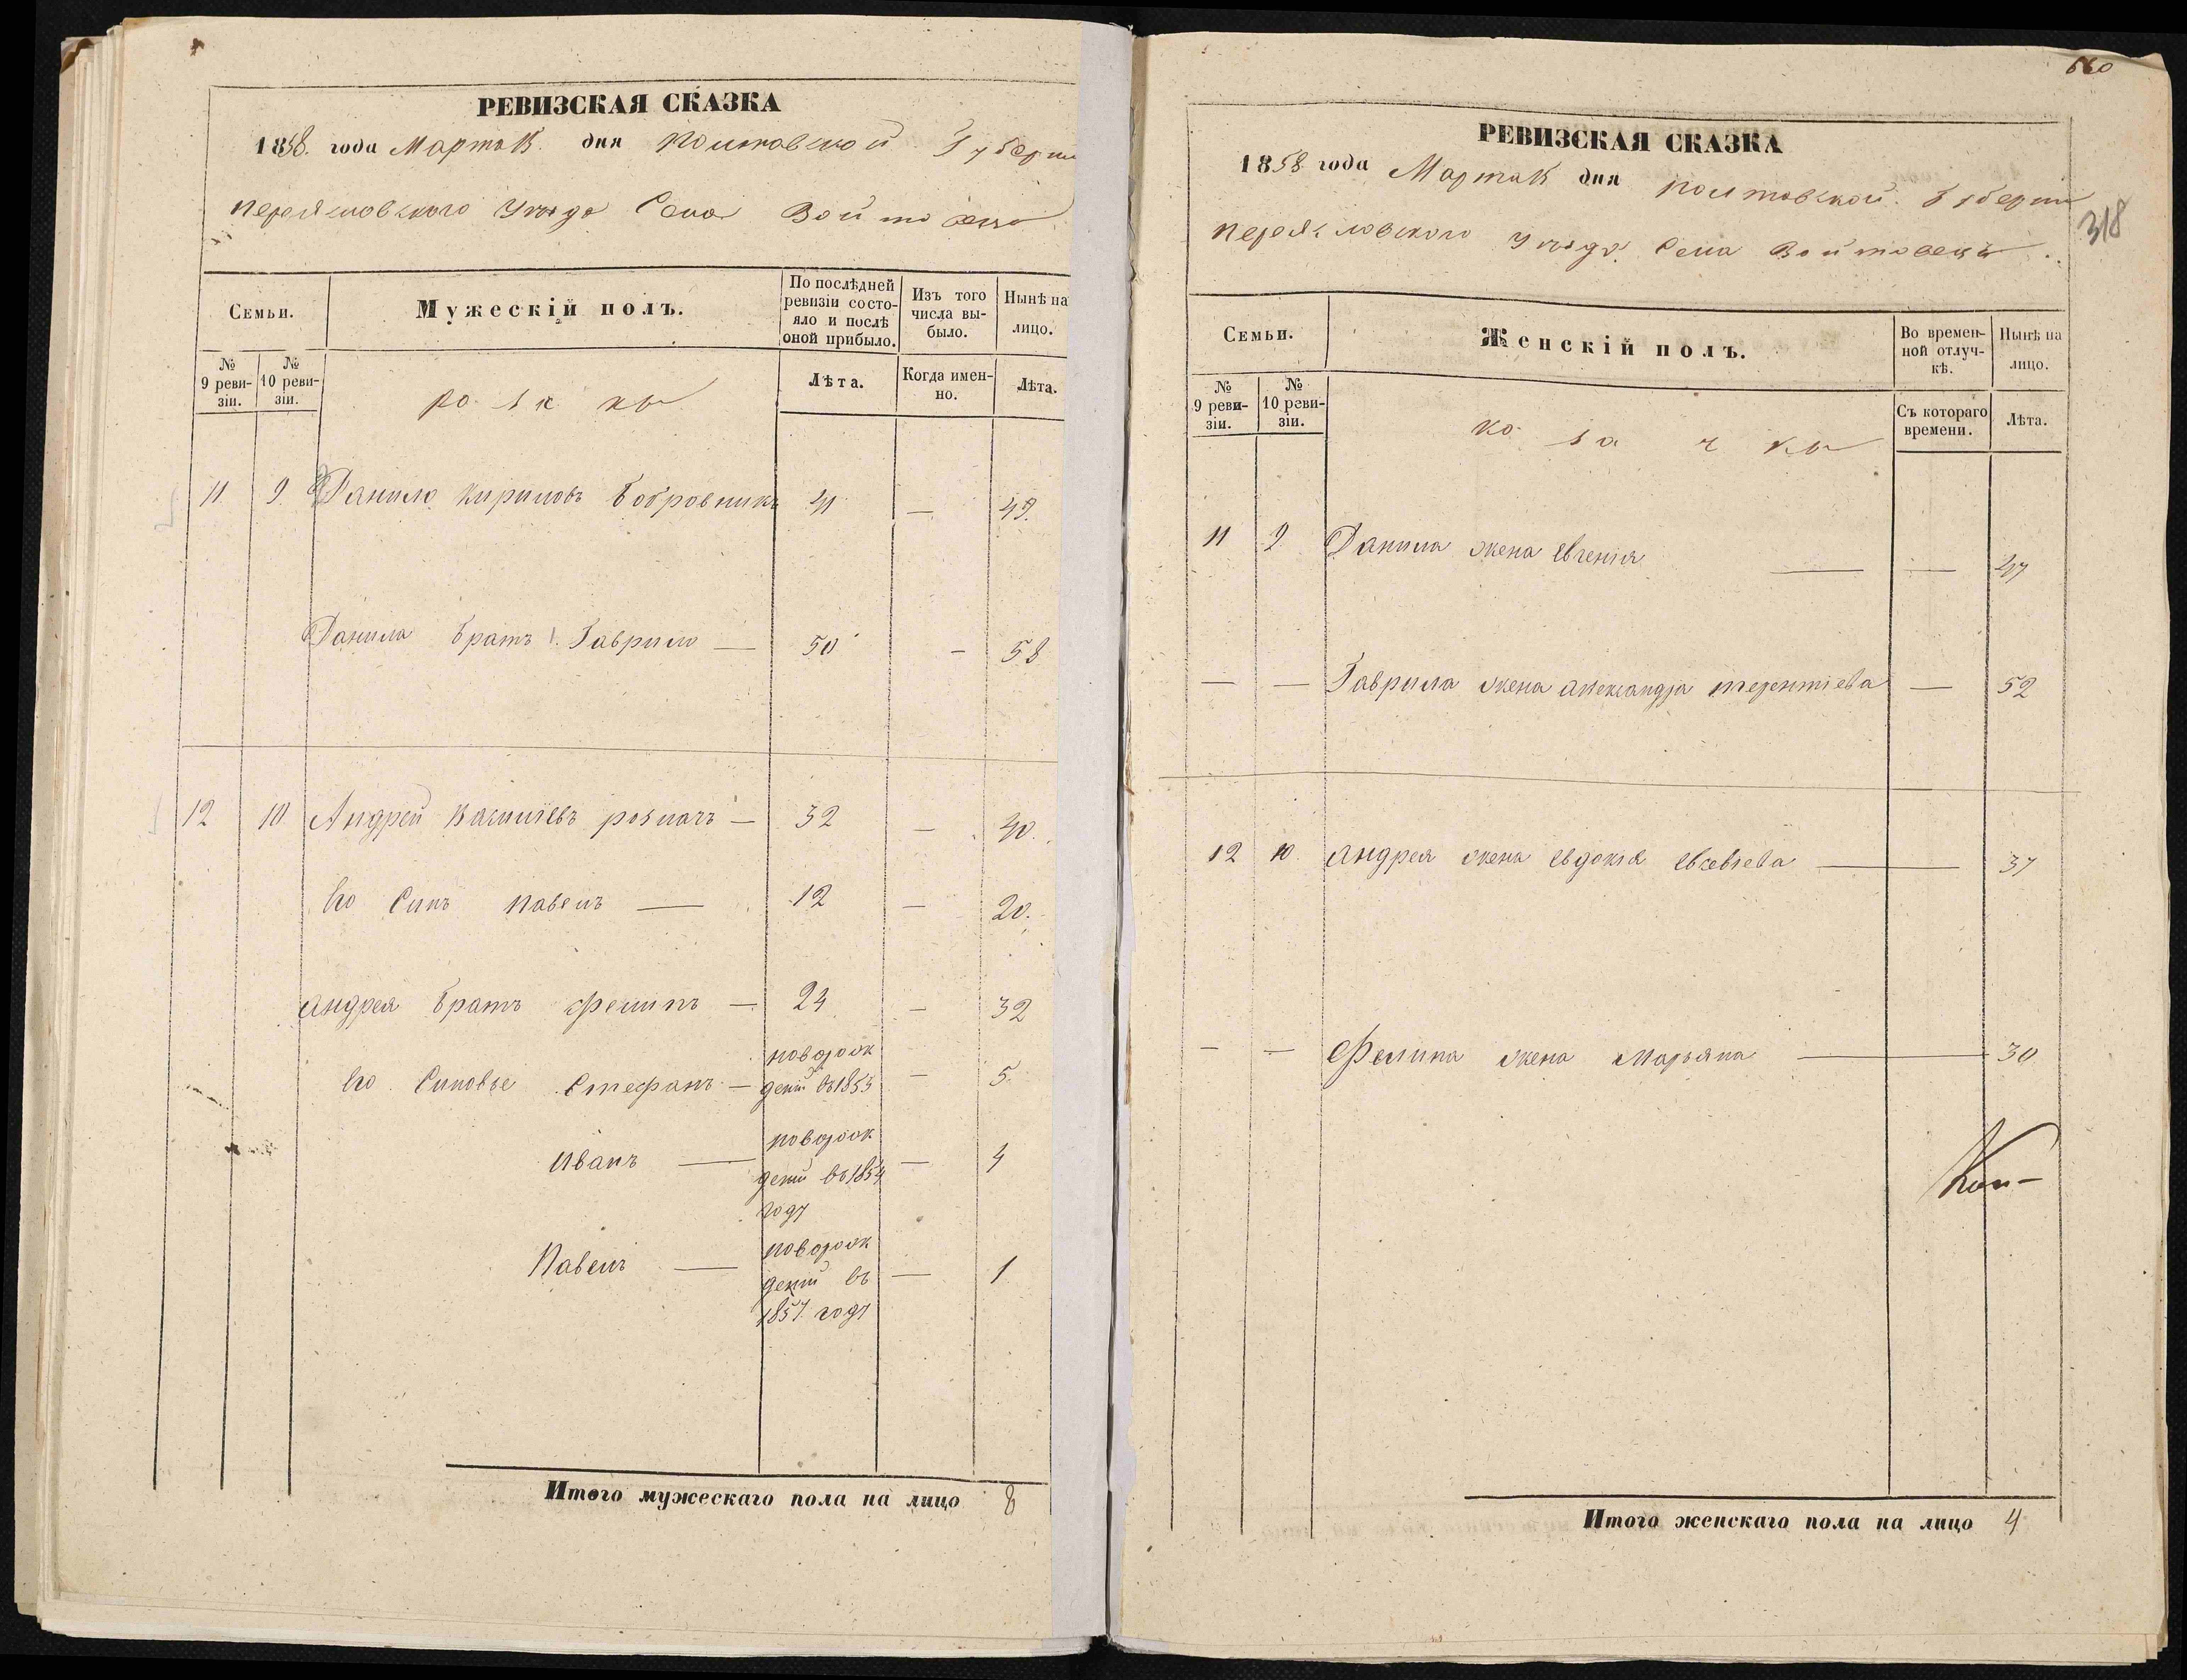 РЕВИЗСКАЯ СКАЗКА
1858. года Марта 15. дня Полтавской Губерніи
Переяславского Уѣзда Села Войтовецъ
Семьи.
Мужескій полъ.
По послѣдней ревизіи состояло и послѣ оной прибыло.
Изъ того числа выбыло.
Ныпѣ на лицо.
№ 9 ревизіи.
№ 10 ревизіи.
Лѣта.
Когда именно.
Лѣта.
11. 9. Данило Кириловъ Бобровникъ 41 — 49.
Данила братъ Гаврило — 50 — 58
12 10 Андрей Васильевъ — 32 — 40.
Его Синъ Павелъ — 12 — 20.
Андрея братъ Филипъ — 24 — 32
Его Синовье Стефанъ — новорож
денй въ 1853 — 5.
Иванъ — новорож
денй въ 1854 — 4
году
Павелъ — новорож
денй въ — 1
1857. году
Итого мужескаго пола на лицо 8
660
318
РЕВИЗСКАЯ СКАЗКА
1858 года Марта 15 дня Полтавской Губерніи
Переясловского Уѣзда Села Войтовецъ
Семьи.
Женскій полъ.
Во временной отлучкѣ.
Нынѣ на лицо.
№ 9 ревизіи.
№ 10 ревизіи.
Съ котораго времени.
Лѣта.
ко за ч ки
11 9. Данила жена Евгенія — — 47
— — Гаврила жена Александра Терентіева — 52
12 10. Андрея жена Евдокія Евсевіева — 37
— — Филипа жена Марьяна — 30
Итого женскаго пола на лицо 4